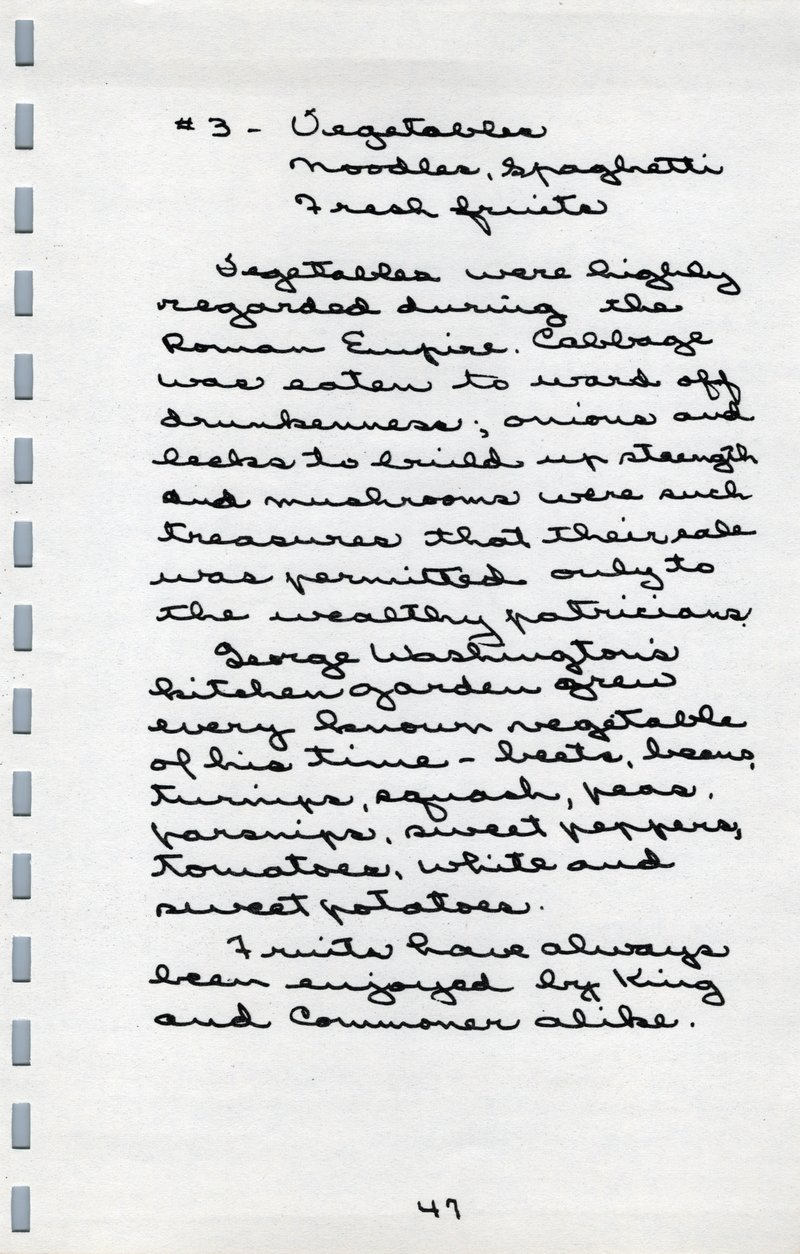 #3 - Vegetables
Noodles, Spaghetti
Fresh fruits
Vegetables were highly
regarded during the
Roman Empire. Cabbage
was eaten to ward off
drunkenness; onions and
leeks to build up strength
and mushrooms were such
treasures that their sale
was permitted only to
the wealthy patricians.
George Washington's
kitchen garden grew
every known vegetable
of his time - beets, beans,
turnips, squash, peas,
parsnips, sweet peppers,
tomatoes, white and
sweet potatoes.
Fruits have always
been enjoyed by King
and Commoner alike.
47